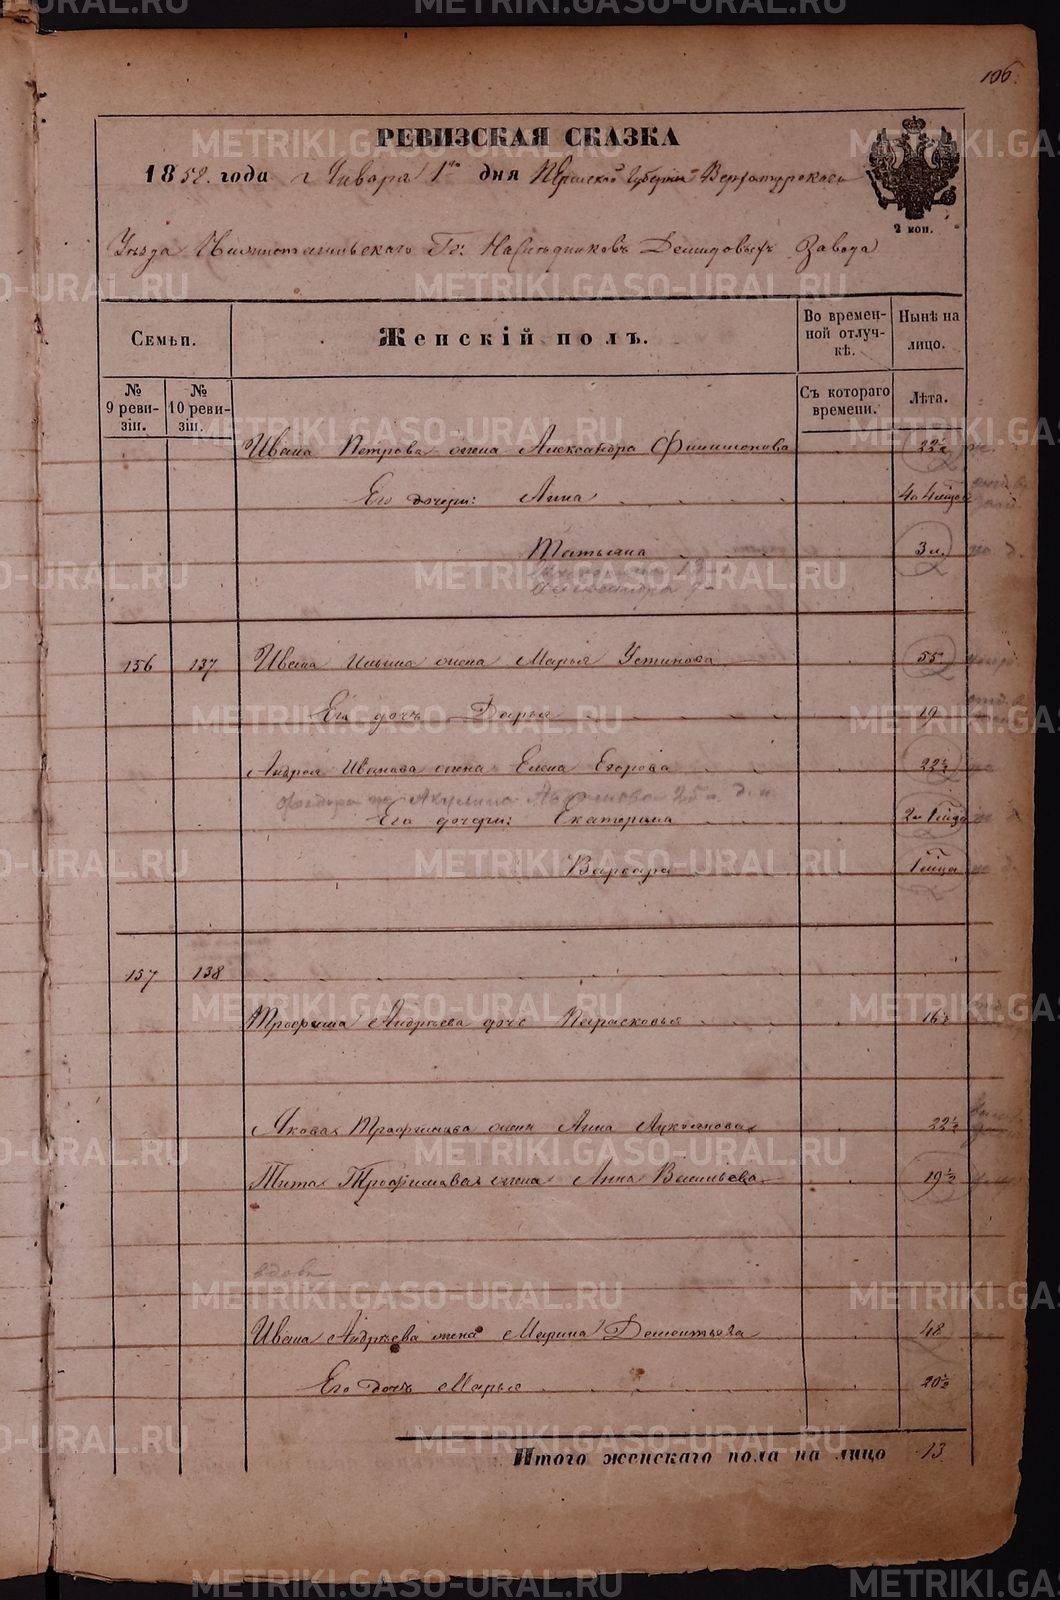 106.
РЕВИЗСКАЯ СКАЗКА
1858. года Января 1го дня Пермской Губернии Верхотурскаго
2 коп.
Уѣзда Нижнетагильскаго Гг: Наслѣдниковъ Демидовыхъ Завода
Семьи. Женскій полъ. Во временной отлучкѣ. Нынѣ на лицо.
№ 9 ревизіи. № 10 ревизіи. Съ котораго времени. Лѣта.
Ивана Петрова жена Александра Филимонова 22½
Его дочери: Анна 4 4 мѣсяц
Татьяна 3 м.
Александра
156 137 Ивана Ильина жена Марья Устинова 55
Его дочь Дарья 19
Андрея Иванова жена Елена Егорова 22½
Федора Акулина 25
Его дочери: Екатерина 2
Варвара 1 мѣсяца
157 138
Трофима Андреева дочь Парасковья 16½
Якова Трофимова жена Анна Лукоянова 22½
Тита Трофимова жена Анна Васильева 19½
вдова
Ивана Андреева жена Марина Дементьева 48
Его дочь Марья 20½
Итого женскаго пола на лицо 13
METRIKI.GASO-URAL.RU